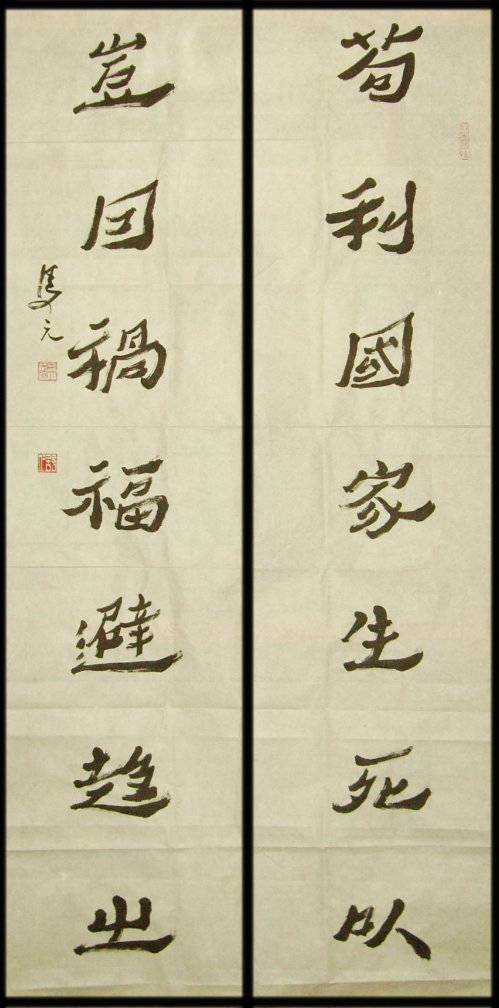 苟利國家生死以
豈因禍福避趨之
元